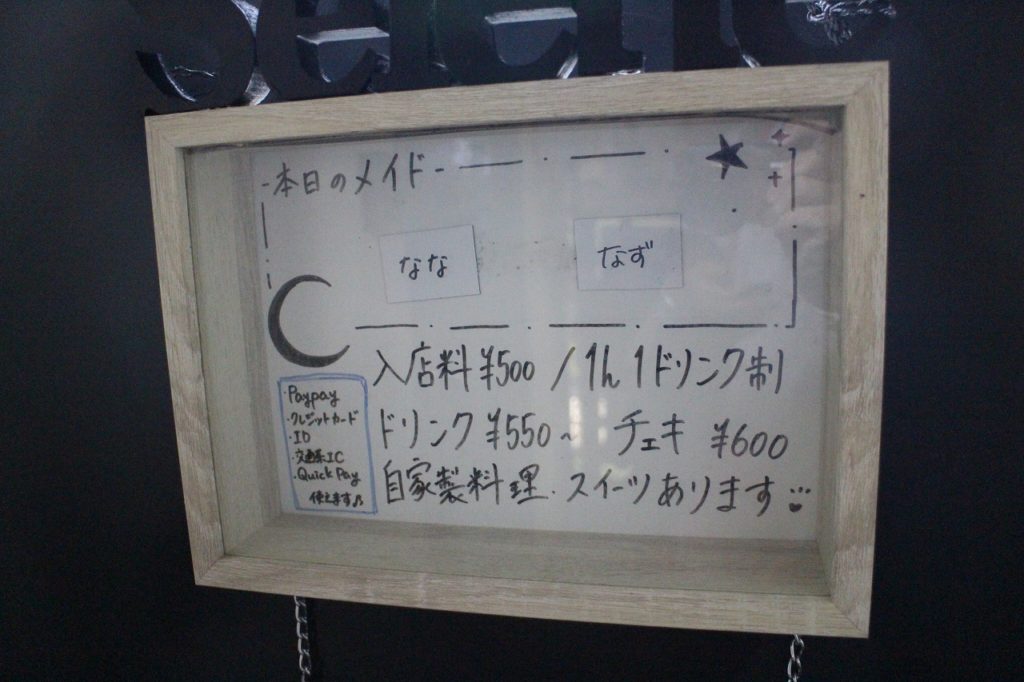 -本日のメイド-
なな
なず
入店料¥500 / 1h 1ドリンク制
ドリンク ¥550~ チェキ ¥600
自家製料理・スイーツあります
・Paypay
・クレジットカード
・ID
・交通系IC
・Quick Pay
使えます♪